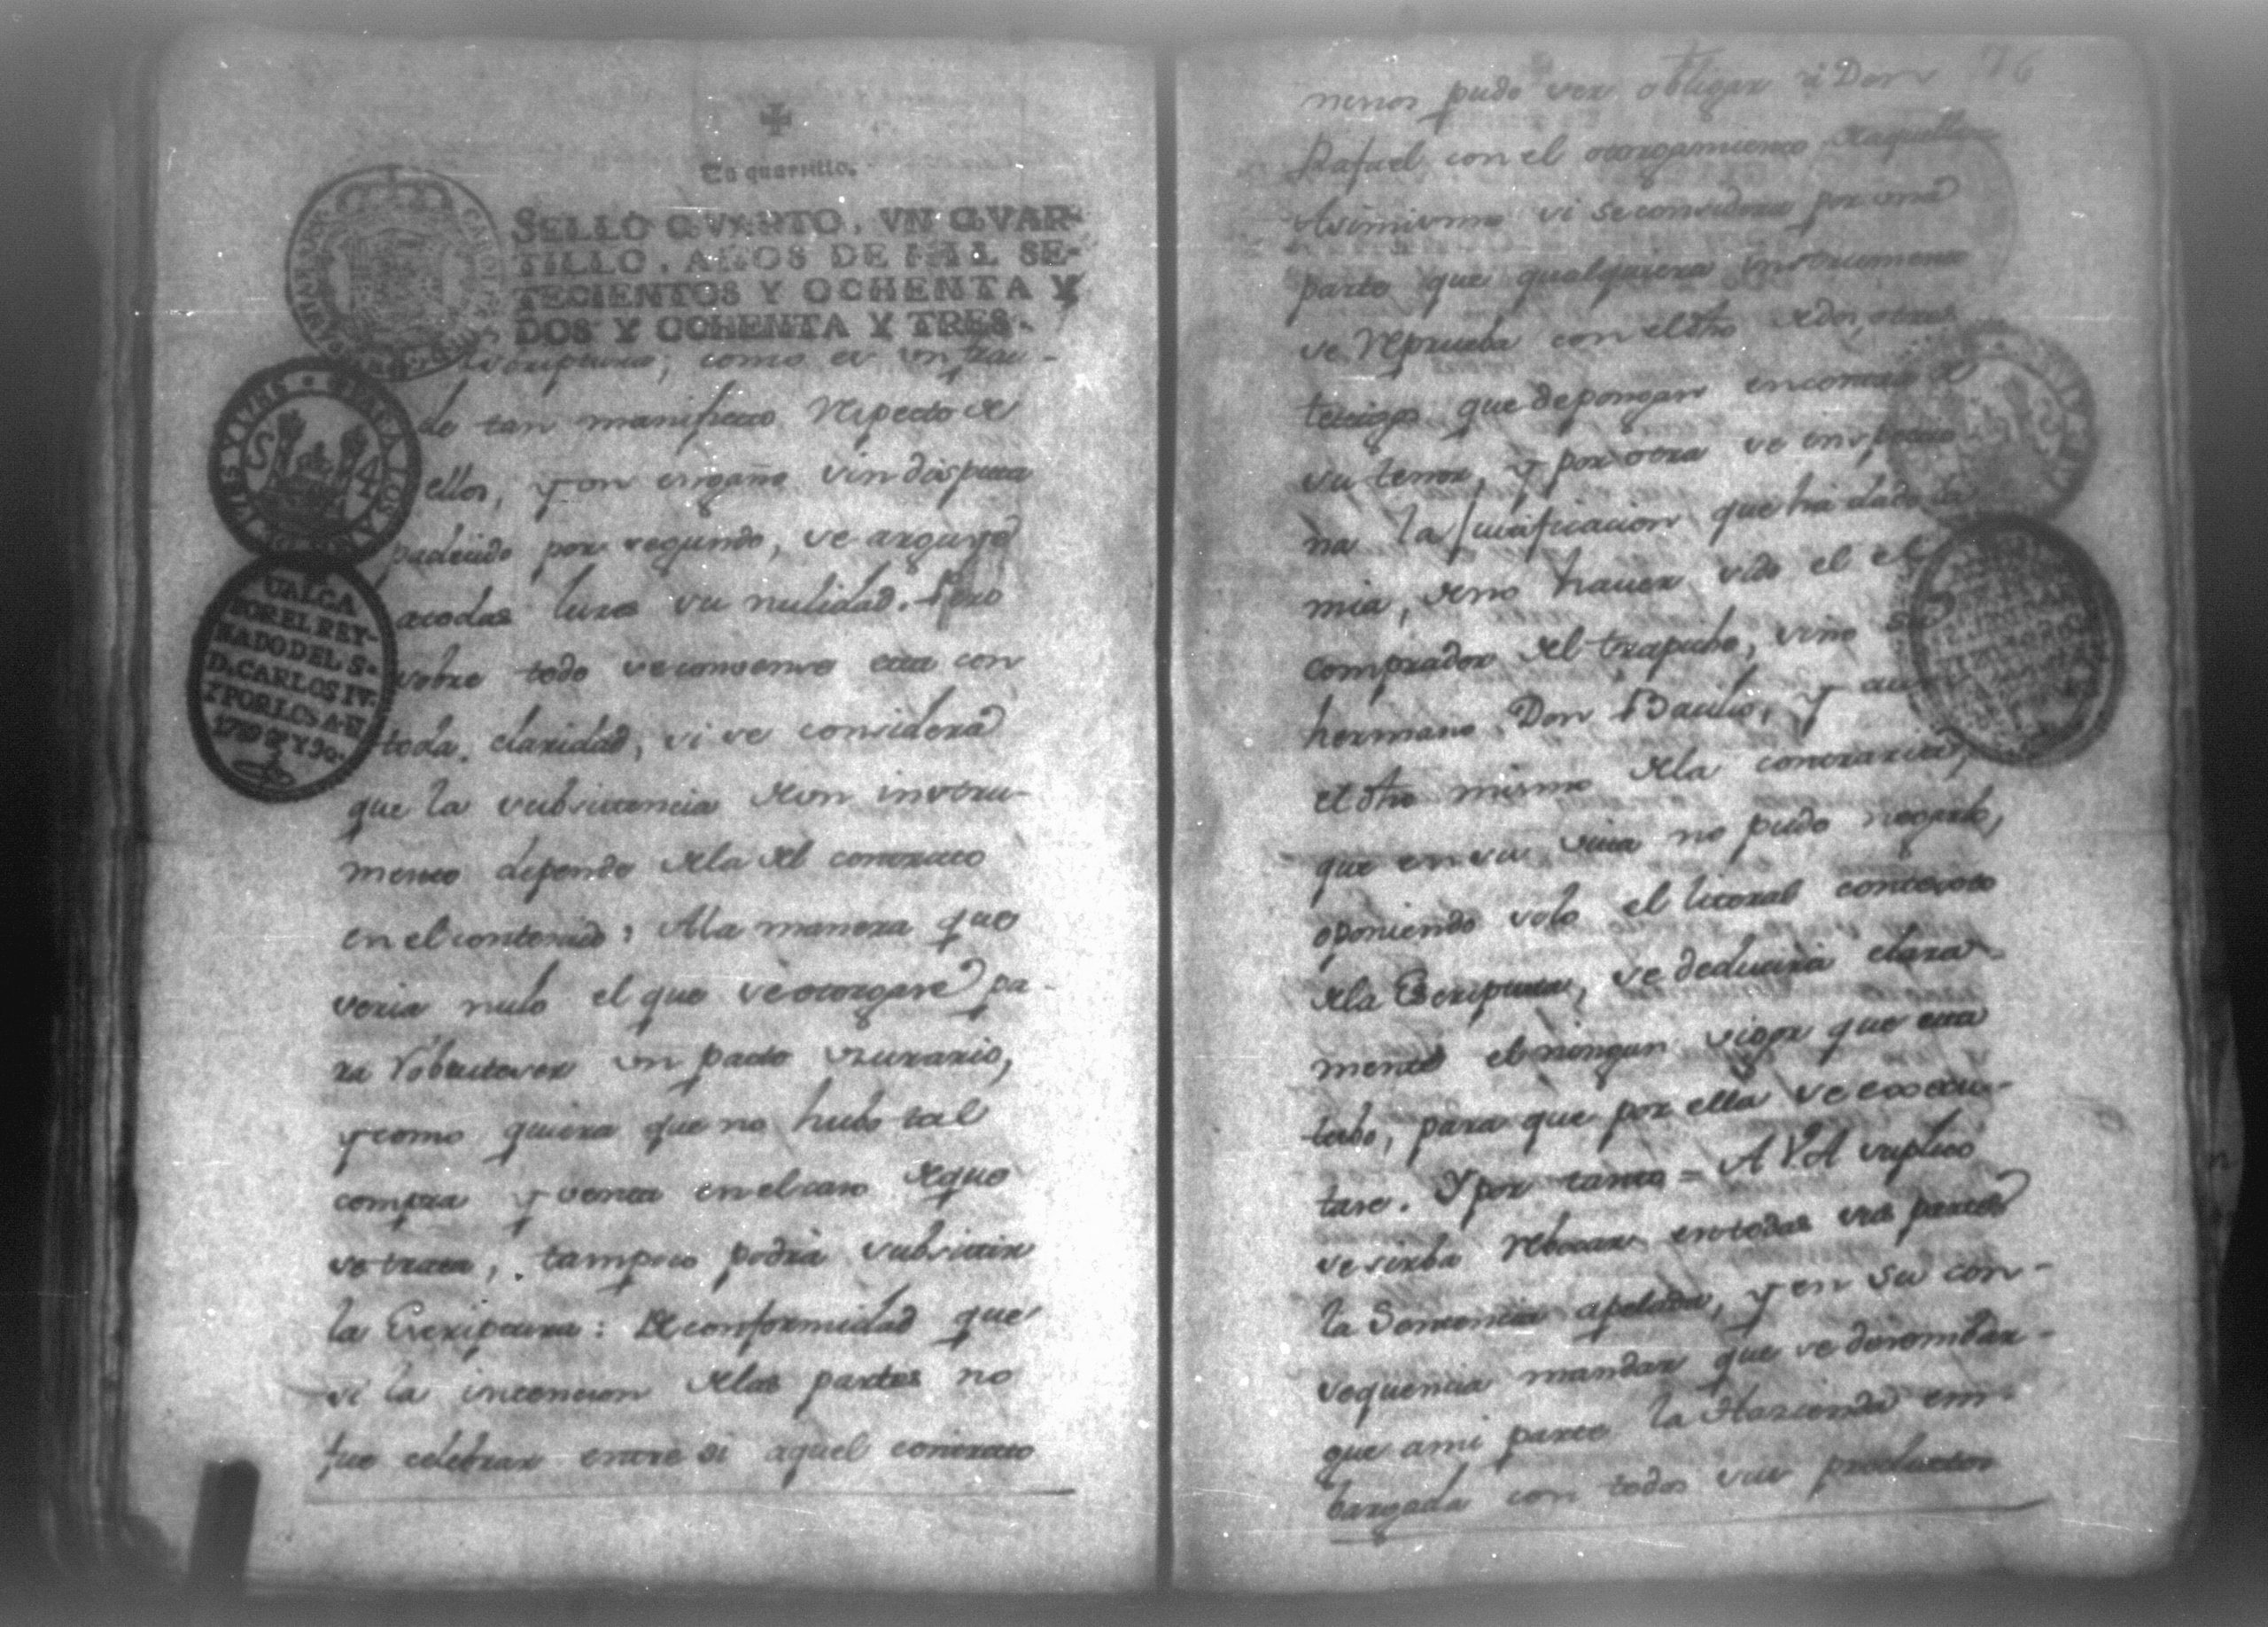 Un quartillo.
SELLO QVARTO, VN QVAR-
TILLO, AÑOS DE MIL SE-
TECIENTOS Y OCHENTA Y
DOS Y OCHENTA Y TRES.
S 4
VALGA
POR EL REY-
NADO DEL S.
D. CARLOS IV.
Y POR LOS A. D
1789 Y 90.
Escriptura, como es un frau-
de tan manifiesto respecto de
ellos, y un engaño sin disputa
padecido por segundo, se arguye
a todas luzes su nulidad. Pero
sobre todo se convence esta con
toda claridad, si se considera
que la subsistencia de un instru-
mento depende de la del contrato
en el contenido: A la manera que
seria nulo el que se otorgare pa-
ra robustecer un pacto usurario,
y como quiera que no hubo tal
compra y venta en el caso de que
se trata, tampoco podia subsistir
la Escriptura: De conformidad que
si la intencion de las partes no
fue celebrar entre si aquel contrato
76
menos pudo ser obligar a Don
Rafael con el otorgamiento de aquella
Asimismo si se considera por una
parte que qualquiera instrumento
se reprueba con el dho de dos, otres
testigos que depongan en contra de
su tenor, y por otra se inspecciona
na la justificacion que ha dado la
mia, de no haver sido el el
comprador del trapiche, sino su
hermano Don Bacilio, y aun
el dho mismo de la contraria,
que en su vista no pudo negarlo,
oponiendo solo el literal contexto
de la Escriptura, se deducirá clara-
mente el ningun vigor que esta
tubo, para que por ella se execu-
tase. Y por tanto = A V.A suplico
se sirba rebocar en todas sus partes
la Sentencia apelada, y en su con-
sequencia mandar que se desembar-
gue a mi parte la Hazienda em-
bargada con todos sus productos